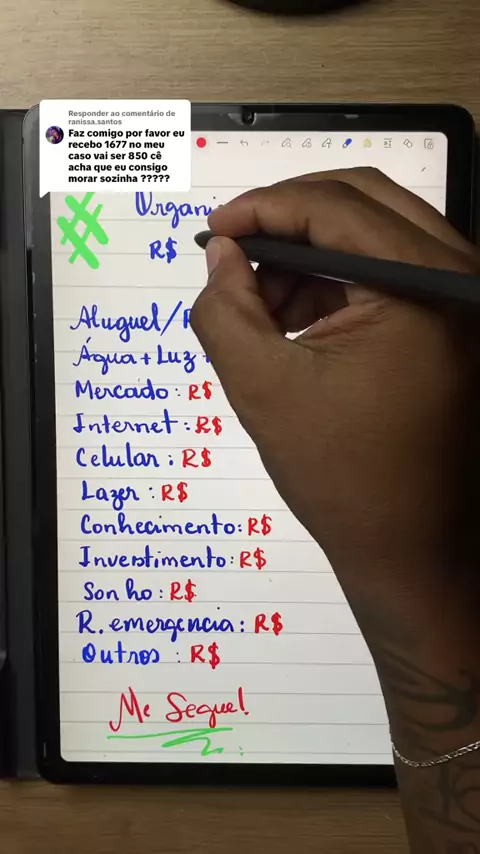 Responder ao comentário de
ranissa.santos
Faz comigo por favor eu
recebo 1677 no meu
caso vai ser 850 cê
acha que eu consigo
morar sozinha ?????
R$
Aluguel/
Água + Luz +
Mercado: R$
Internet: R$
Celular: R$
Lazer: R$
Conhecimento: R$
Investimento: R$
Sonho: R$
R. emergencia: R$
Outros: R$
Me Segue!